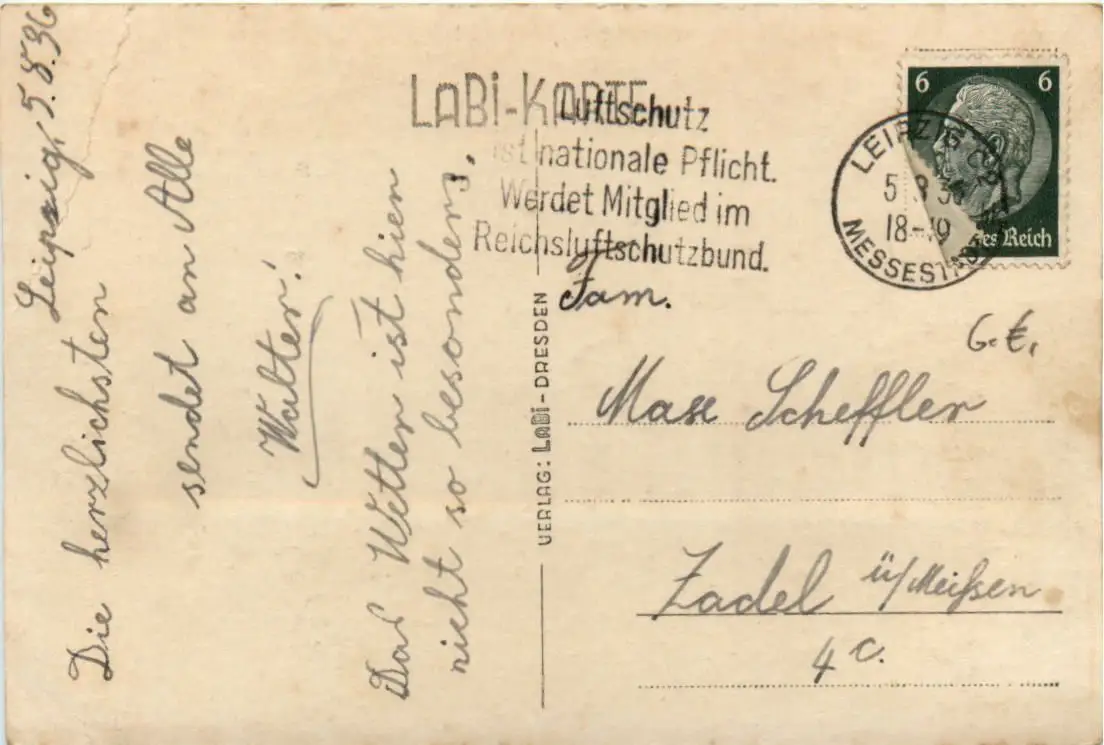 Leipzig, 5.8.36
Die herzlichsten
sendet an Alle
Walter!
Das Wetter ist hier
nicht so besonders.
LABI-KARTE
Luftschutz
ist nationale Pflicht.
Werdet Mitglied im
Reichsluftschutzbund.
VERLAG: LABI-DRESDEN
6 6
es Reich
LEIPZIG C2
5 8 36
18-19
MESSESTADT
Fam.
G.E.
Max Scheffler
Zadel ü/Meißen
4 c.